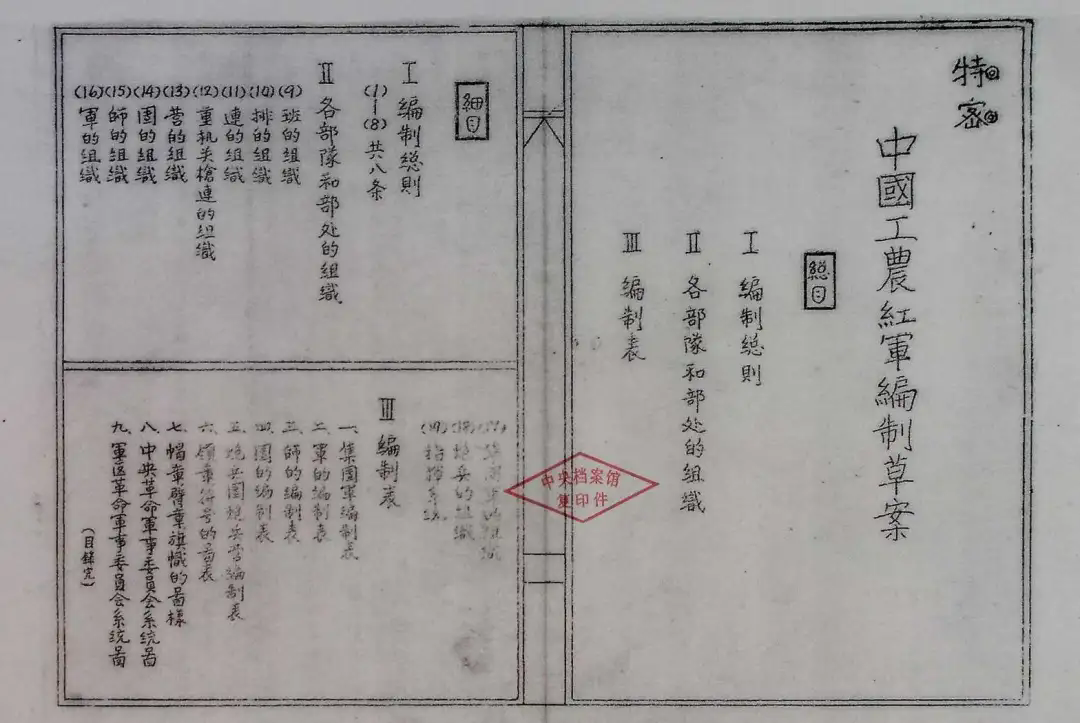 特密
中國工農紅軍編制草案
總目
Ⅰ 編制總則
Ⅱ 各部隊和部处的組織
Ⅲ 編制表
細目
Ⅰ 編制總則
(1)—(8)共八条
Ⅱ 各部隊和部处的組織
(9)班的組織
(10)排的組織
(11)連的組織
(12)重机关槍連的組織
(13)营的組織
(14)團的組織
(15)師的組織
(16)軍的組織
(17)
(18)炮兵的組織
(19)指揮系統
Ⅲ 編制表
一、集團軍編制表
二、軍的編制表
三、師的編制表
四、團的編制表
五、炮兵團炮兵营編制表
六、領章符号的啚表
七、帽章臂章旗幟的啚樣
八、中央革命軍事委員会系統啚
九、軍区革命軍事委員会系統啚
(目錄完)
中央档案馆
复印件